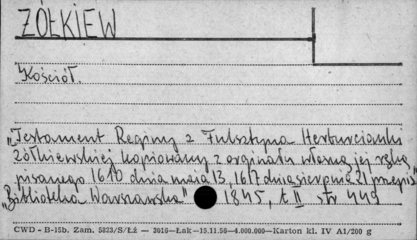 ŻÓŁKIEW
Kościół.
„Testament Reginy z Fulsztyna Herburcianki
żółkiewskiej kopiowany z orginału własną jej ręką
pisanego 1610 dnia maia 13, 16 dnia sierpnia 21
"Biblioteka Warszawska" 1845, t. II str 449
CWD - B-15b. Zam. 5823/S/Łż — 3016—Łak—15.11.50—4.000.000—Karton kl. IV A1/200 g